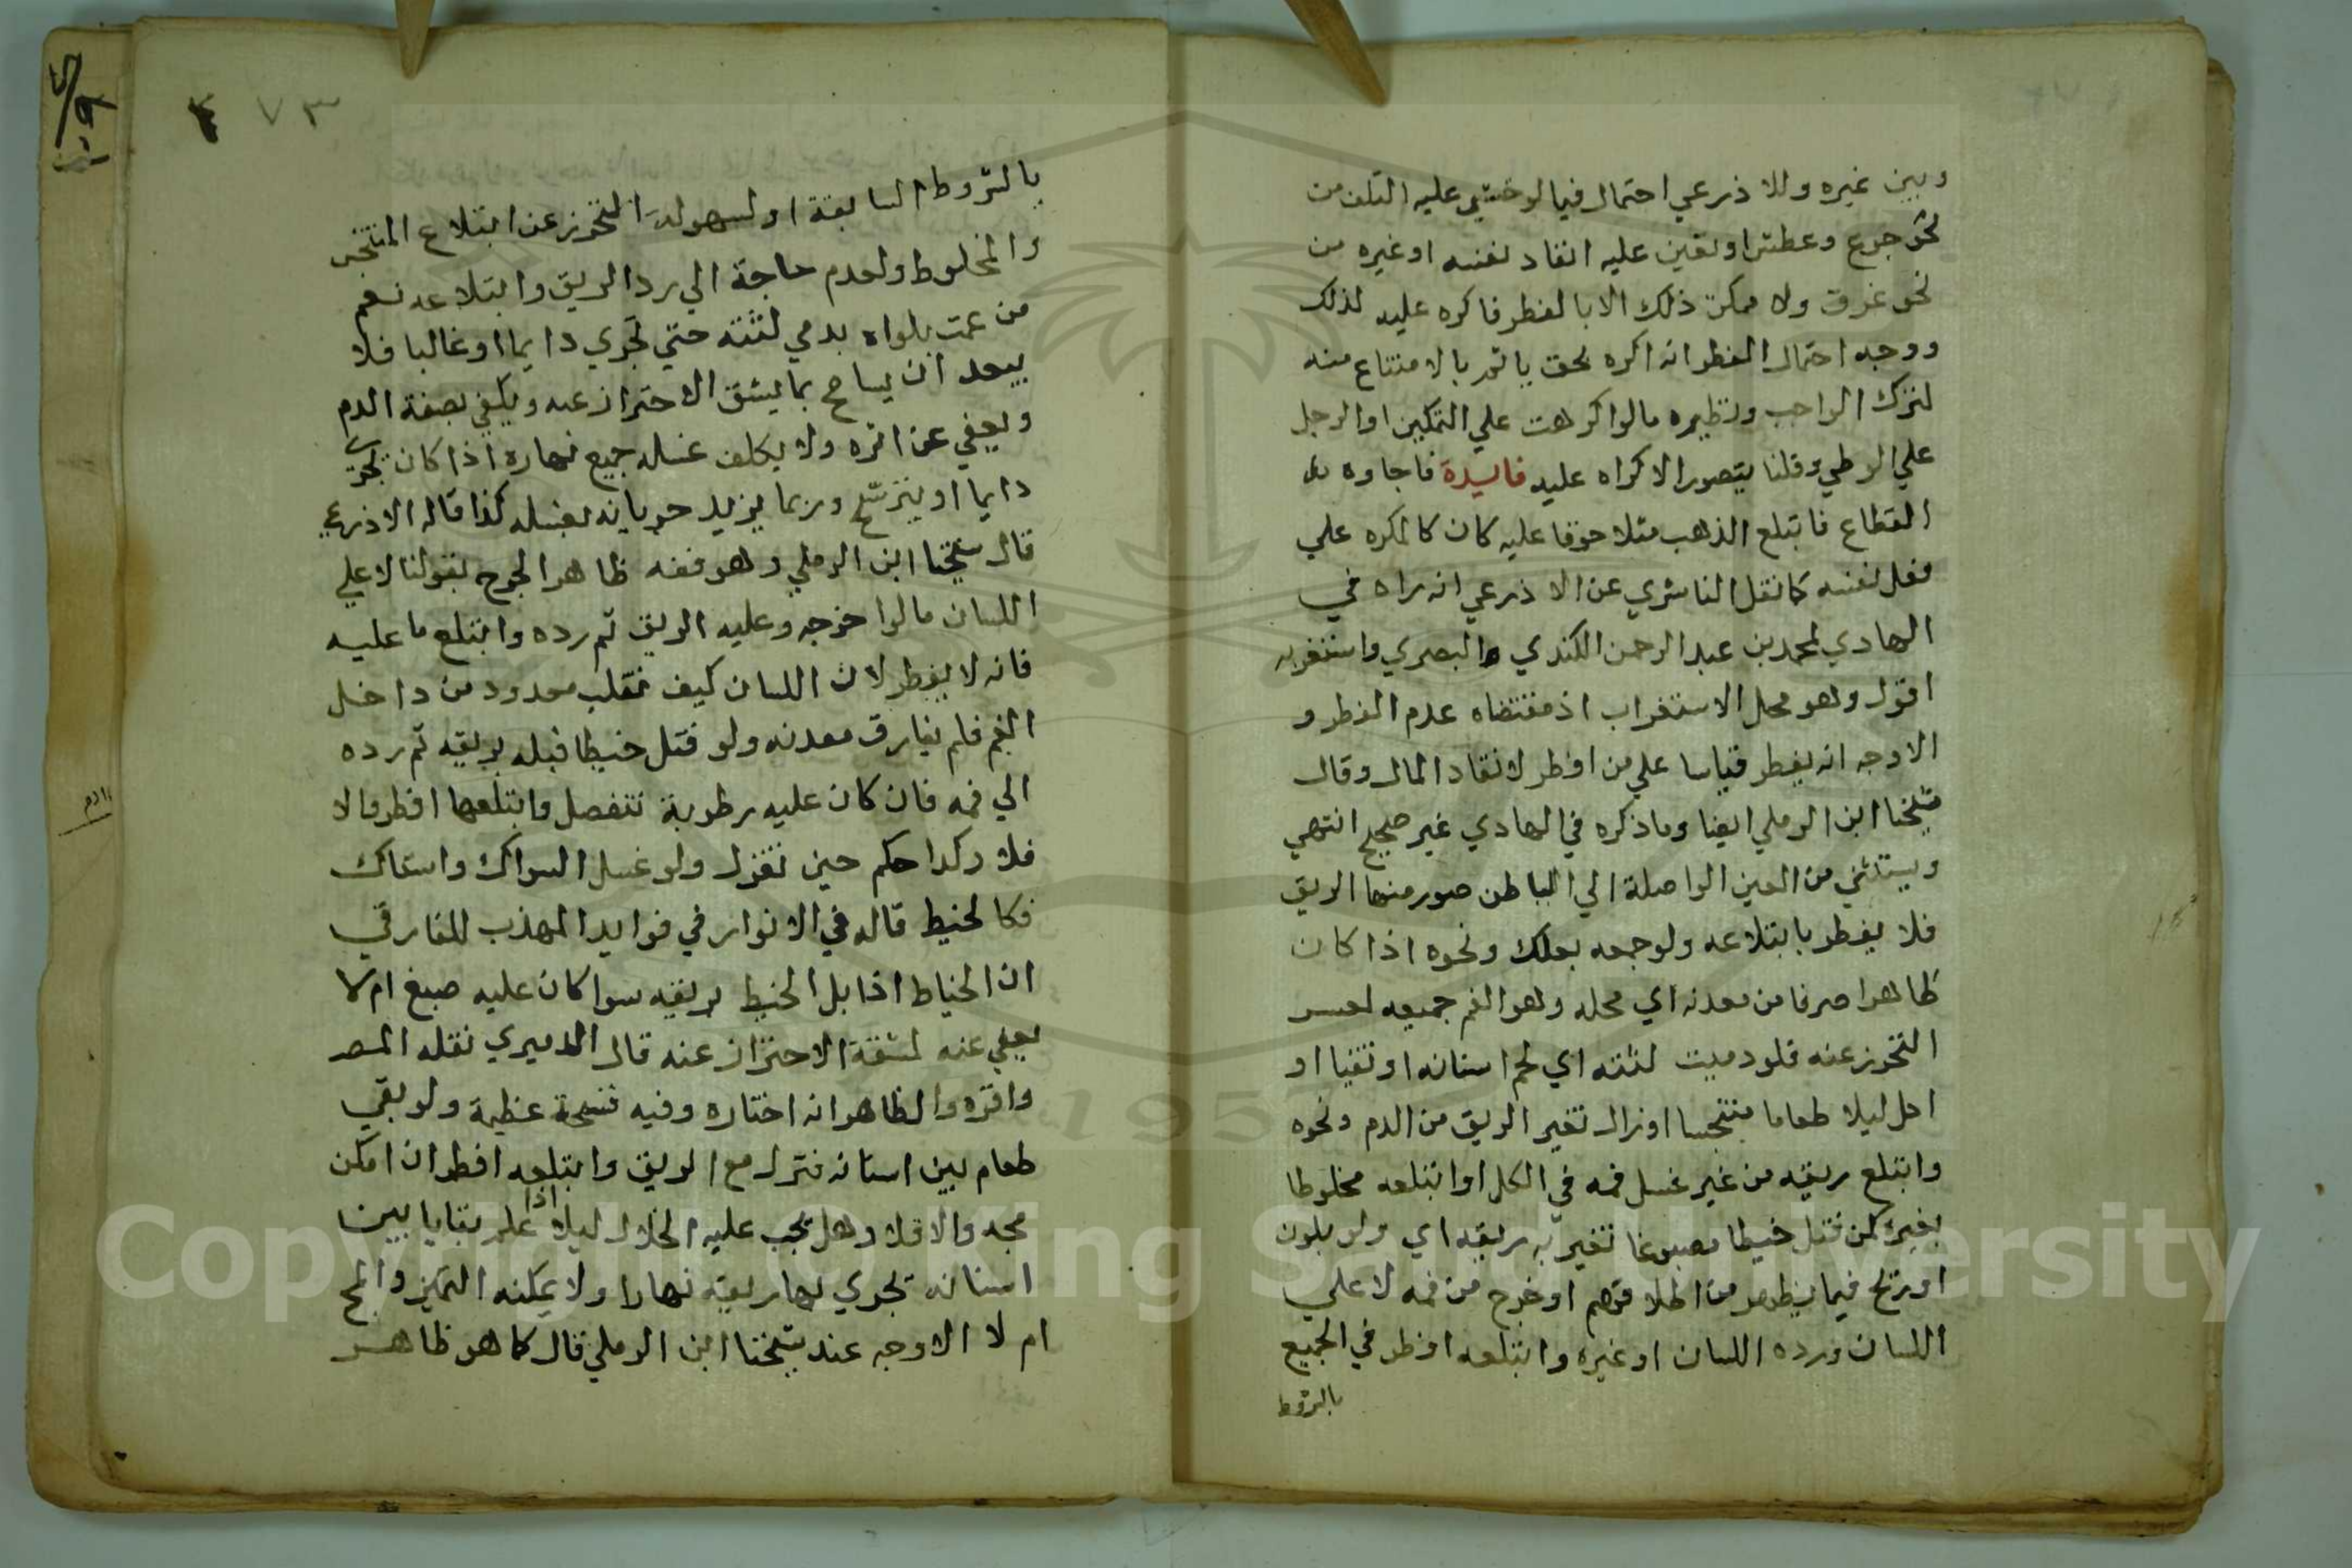 وبين غيره وللاذرعي احتمال فيما لو خشي عليه التلف من
نحو جوع وعطش او تعين عليه انقاذ نفسه او غيره من
نحو غرق ولا يمكن ذلك الا بالفطر فاكره عليه لذلك
ووجه احتمال الفطر انه اكره بحق ياثم بالامتناع منه
لترك الواجب ونظيره مالو اكرهت علي التمكين او الرجل
علي الوطي وقلنا يتصور الاكراه عليه فايدة فاجاوه
القطاع فابتلع الذهب مثلا خوفا عليه كان كالمكره علي
فعل نفسه كما نقل الناشري عن الاذرعي انه راه في
الهادي لمحمد بن عبد الرحمن الكندي والبصري واستغربه
اقول وهو محل الاستغراب اذ مقتضاه عدم الفطر و
الاوجه انه يفطر قياسا علي من افطر لانقاد المال وقال
شيخنا ابن الرملي ايضا وما ذكره في الهادي غير صحيح انتهي
ويستثني من العين الواصلة الي الباطن صور منها الريق
فلا يفطر بابتلاعه ولو جمعه بعلك ونحوه اذا كان
ظاهرا صرفا من معدنه اي محله وهو الفم جميعه لعسر
التحرز عنه فلو دميت لثته اي لحم اسنانه او تقيا او
اكل ليلا طعاما متنجسا او زال تغير الريق من الدم ونحوه
وابتلع ريقه من غير غسل فمه في الكل او ابتلعه مخلوطا
بغيره كمن فتل خيطا مصبوغا تغير به ريقه اي ولو بلون
او ريح فيما يظهر من اطلاقهم او خرج من فمه لا علي
اللسان ورده اللسان او غيره وابتلعه افطر في الجميع
بالشروط
٣ ٧
بالشروط السابقة او لسهولة التحرز عن ابتلاع المتنجس
والمخلوط ولعدم حاجة الي رد الريق وابتلاعه نعم
من عمت بلواه بدمي لثته حتي تجري دايما او غالبا فلا
يبعد ان يسامح بما يشق الاحتراز عنه ويكفي بصفة الدم
ويعفي عن اثره ولا يكلف غسله جميع نهاره اذا كان يجري
دايما او يترشح وربما يزيد جريانه بغسله كذا قاله الاذرعي
قال شيخنا ابن الرملي وهو فقه ظاهر الخرج بقولنا لا علي
اللسان مالوا خرجه وعليه الريق ثم رده وابتلع ما عليه
فانه لا يفطر لان اللسان كيف تقلب معدود من داخل
الفم فلم يفارق معدنه ولو فتل خيطا فبله بريقه ثم رده
الي فمه فان كان عليه رطوبة تنفصل وابتلعها افطر والا
فلا وكذا حكم حين تغزل ولو غسل السواك واستاك
فكالخيط قاله في الانوار في فوايد المهذب للفارقي
ان الخياط اذا بل الخيط بريقه سوا كان عليه صبغ ام لا
يعفي عنه لمشقة الاحتراز عنه قال الدميري نقله المص
واقره والظاهر انه اختاره وفيه فسحة عظيمة ولو بقي
طعام بين اسنانه فنزل مع الريق وابتلعه افطر ان امكن
مجه والا فلا وهل يجب عليه الخلال ليلا اذا علم بقايا بين
اسنانه تجري بها ريقه نهارا ولا يمكنه التميز والمج
ام لا الاوجه عند شيخنا ابن الرملي قال كما هو ظاهر
Copyright © King Saud University
195